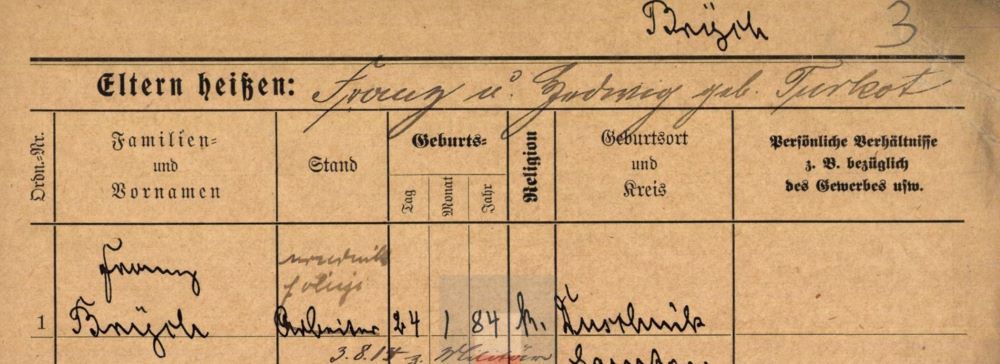 Brÿch 3
Eltern heißen: Franz u. Hedwig geb. Turkot
Ordn.-Nr.
Familien-
und
Vornamen
Stand
Geburts-
Tag
Monat
Jahr
Religion
Geburtsort
und
Kreis
Persönliche Verhältnisse
z. B. bezüglich
des Gewerbes usw.
Franz
policji
1 Brÿch Arbeiter 24 1 84 k.
3.8.14 Militär